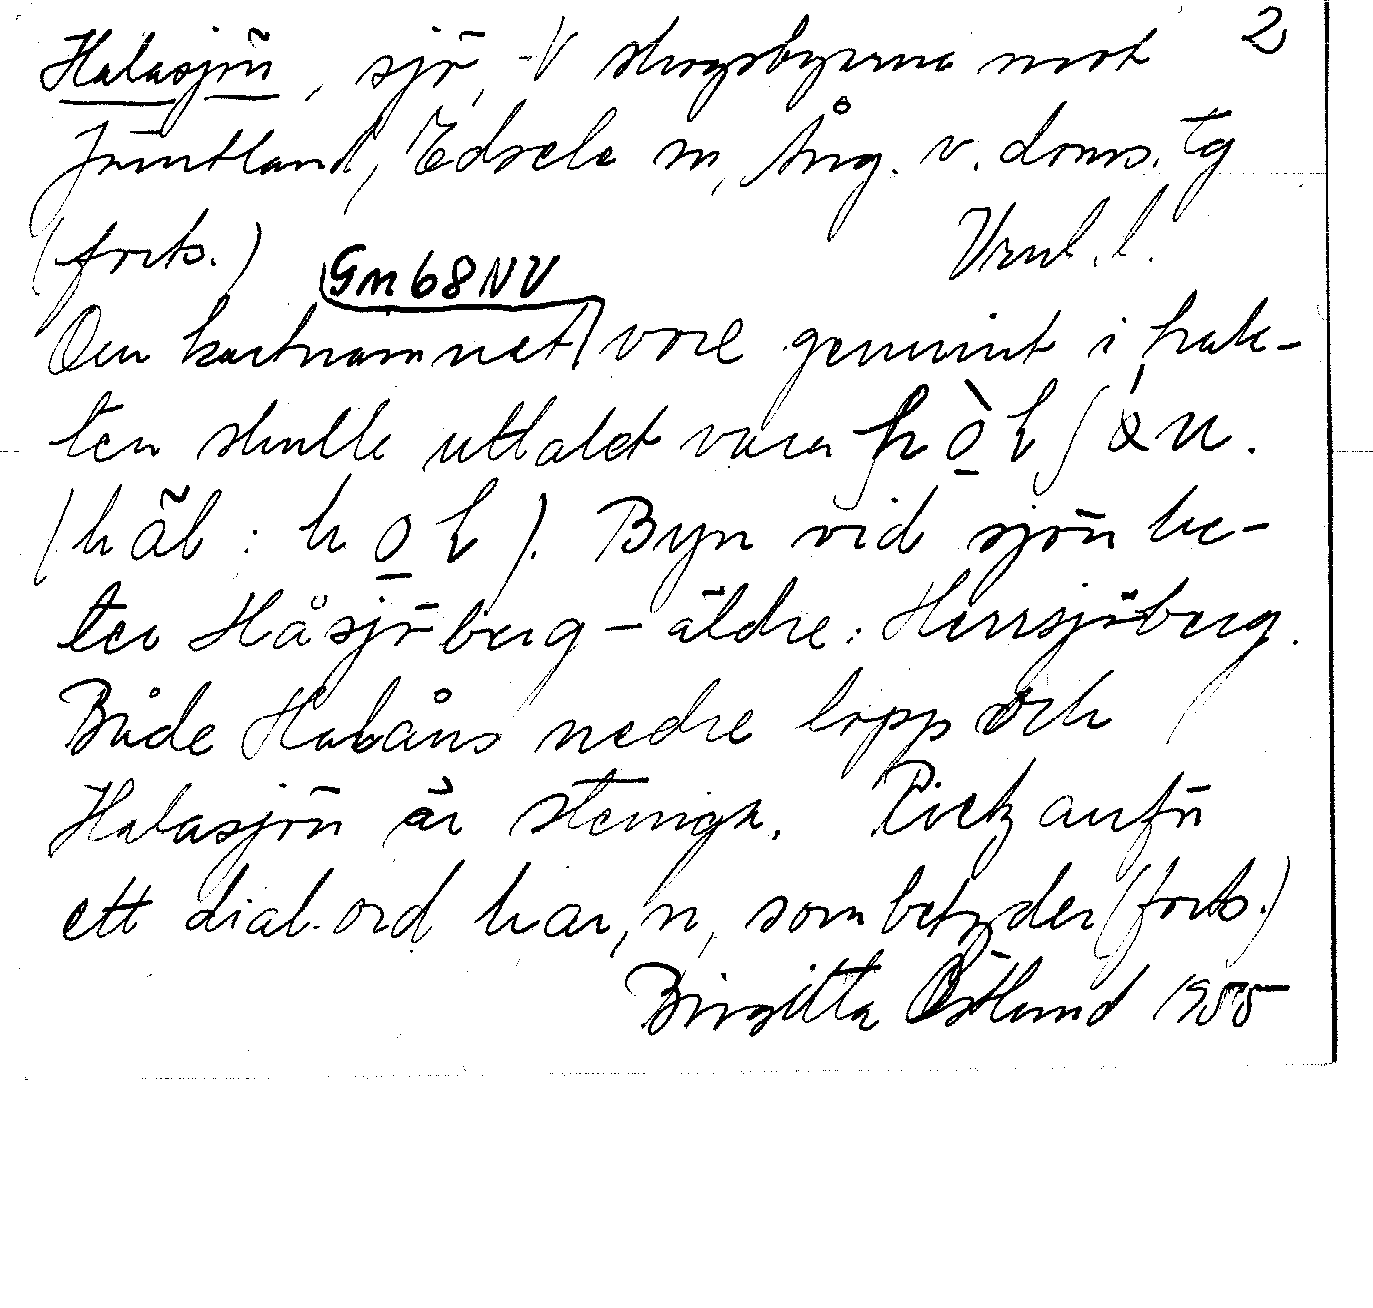 Halasjön, sjö, V skogsbyarna mot 2
Jämtland, Edsele sn, Ång. v. doms. tg
(forts.) Urnl. l.
Gm68NV
Om kartnamnet vore genuint i trak-
ten skulle uttalet vara
(häl : ). Byn vid sjön he-
ter Håsjöberg – äldre: Herrsjöberg.
Både Halåns nedre lopp och
Halasjön är steniga. Rietz anför
ett dial. ord har, n, som betyder (forts.)
Birgitta Östlund 1955